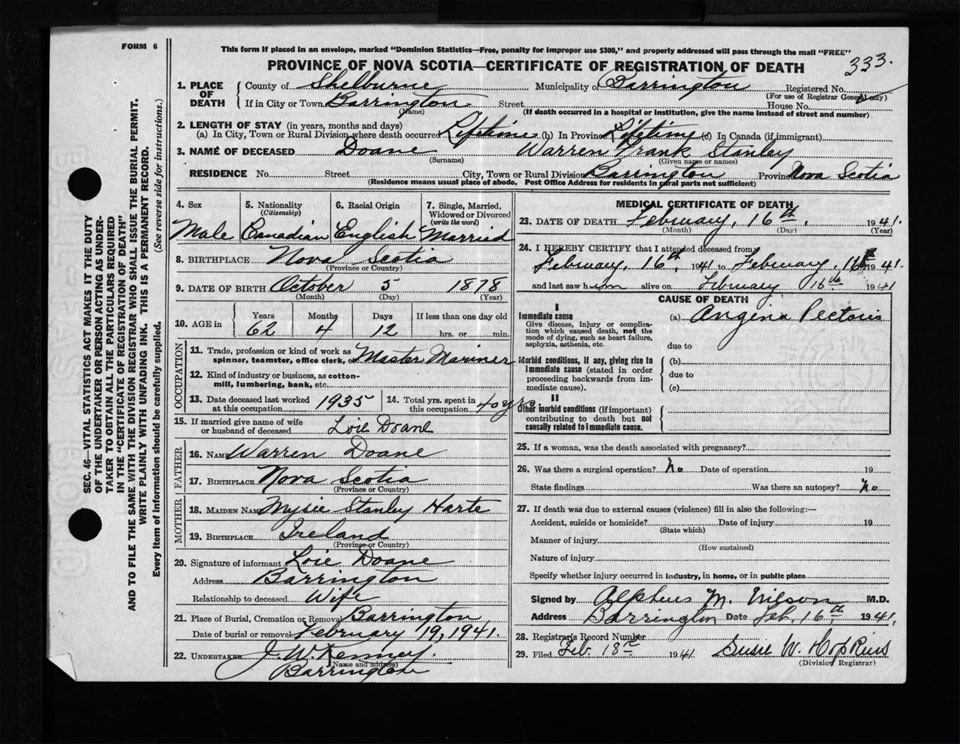 FORM 6
This form if placed in an envelope, marked "Dominion Statistics—Free, penalty for improper use $300," and properly addressed will pass through the mail "FREE"
PROVINCE OF NOVA SCOTIA—CERTIFICATE OF REGISTRATION OF DEATH
333.
1. PLACE OF DEATH
County of Shelburne Municipality of Barrington Registered No.
(For use of Registrar General only)
If in City or Town Barrington Street House No.
(Name) (If death occurred in a hospital or institution, give the name instead of street and number)
2. LENGTH OF STAY (in years, months and days)
(a) In City, Town or Rural Division where death occurred Lifetime (b) In Province Lifetime (c) In Canada (if immigrant)
3. NAME OF DECEASED Doane Warren Frank Stanley
(Surname) (Given name or names)
RESIDENCE No. Street City, Town or Rural Division Barrington Province Nova Scotia
(Residence means usual place of abode. Post Office Address for residents in rural parts not sufficient)
4. Sex 5. Nationality (Citizenship) 6. Racial Origin 7. Single, Married, Widowed or Divorced (write the word)
Male Canadian English Married
8. BIRTHPLACE Nova Scotia
(Province or Country)
9. DATE OF BIRTH October 5 1878
(Month) (Day) (Year)
10. AGE in Years Months Days If less than one day old
62 4 12 hrs. or min.
OCCUPATION
11. Trade, profession or kind of work as spinner, teamster, office clerk, etc. Master Mariner
12. Kind of industry or business, as cotton-mill, lumbering, bank, etc.
13. Date deceased last worked at this occupation 1935 14. Total yrs. spent in this occupation 40 yrs.
15. If married give name of wife or husband of deceased Loie Doane
FATHER
16. Name Warren Doane
17. Birthplace Nova Scotia
(Province or Country)
MOTHER
18. Maiden Name Mysie Stanley Harte
19. Birthplace Ireland
(Province or Country)
20. Signature of informant Loie Doane
Address Barrington
Relationship to deceased Wife
21. Place of Burial, Cremation or Removal Barrington
Date of burial or removal February 19, 1941.
22. UNDERTAKER J. W. Kenney.
(Name and address)
Barrington
MEDICAL CERTIFICATE OF DEATH
23. DATE OF DEATH February, 16th, 1941.
(Month) (Day)
24. I HEREBY CERTIFY that I attended deceased from
February, 16th, 1941 to February, 16th 1941
and last saw him alive on February 16th 1941
CAUSE OF DEATH
I
Immediate cause
Give disease, injury or complication which caused death, not the mode of dying, such as heart failure, asphyxia, asthenia, etc.
(a) Angina Pectoris
due to
Morbid conditions, if any, giving rise to immediate cause (stated in order proceeding backwards from immediate cause).
(b)
due to
(c)
II
Other morbid conditions (if important) contributing to death but not causally related to immediate cause.
25. If a woman, was the death associated with pregnancy?
26. Was there a surgical operation? No Date of operation 19
State findings Was there an autopsy? No
27. If death was due to external causes (violence) fill in also the following:—
Accident, suicide or homicide? Date of injury 19
(State which)
Manner of injury
(How sustained)
Nature of injury
Specify whether injury occurred in industry, in home, or in public place
Signed by Alpheus M. Wilson M.D.
Address Barrington Date Feb. 16th, 1941,
28. Registrar's Record Number
29. Filed Feb. 18th 1941 Susie W. Hopkins
(Division Registrar)
SEC. 46—VITAL STATISTICS ACT MAKES IT THE DUTY
OF THE UNDERTAKER OR PERSON ACTING AS UNDER-
TAKER TO OBTAIN ALL THE PARTICULARS REQUIRED
IN THE "CERTIFICATE OF REGISTRATION OF DEATH"
AND TO FILE THE SAME WITH THE DIVISION REGISTRAR WHO SHALL ISSUE THE BURIAL PERMIT.
WRITE PLAINLY WITH UNFADING INK. THIS IS A PERMANENT RECORD.
Every item of information should be carefully supplied. (See reverse side for instructions.)